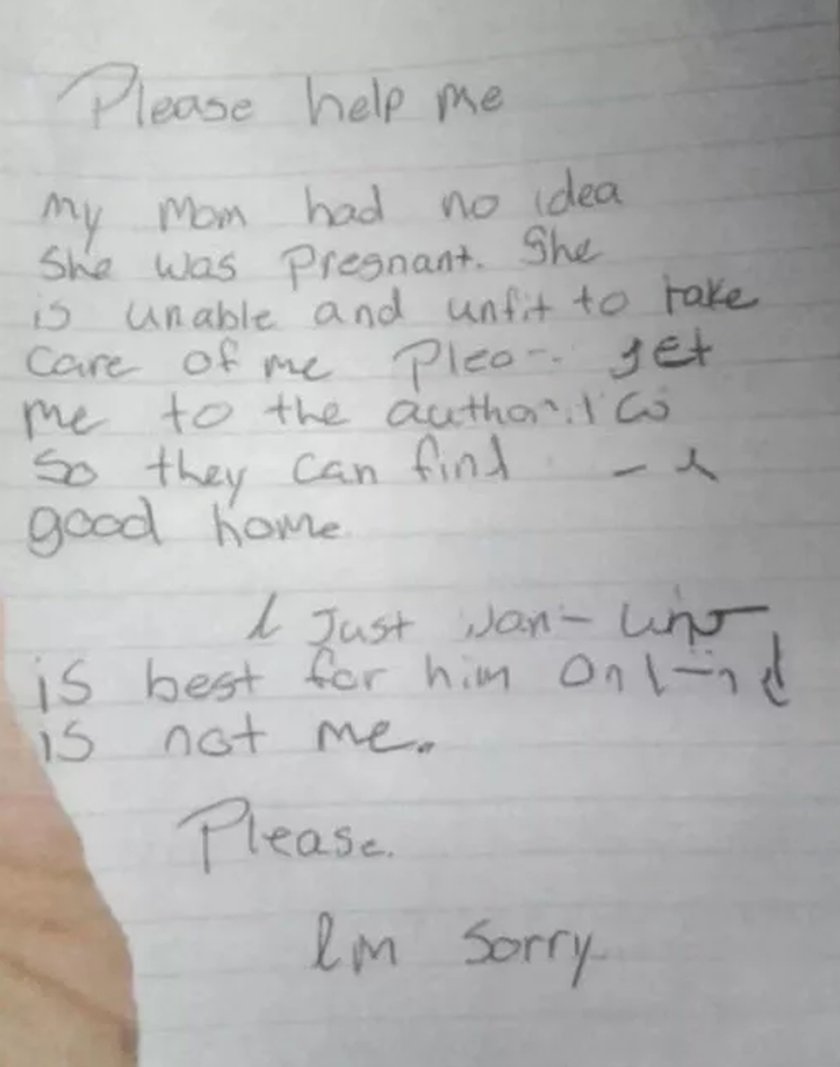 Please help me
My Mom had no idea
She was Pregnant. She
is unable and unfit to take
care of me get
me to the
So they can find
good home
I Just
is best for him
is not me.
Please.
Im Sorry